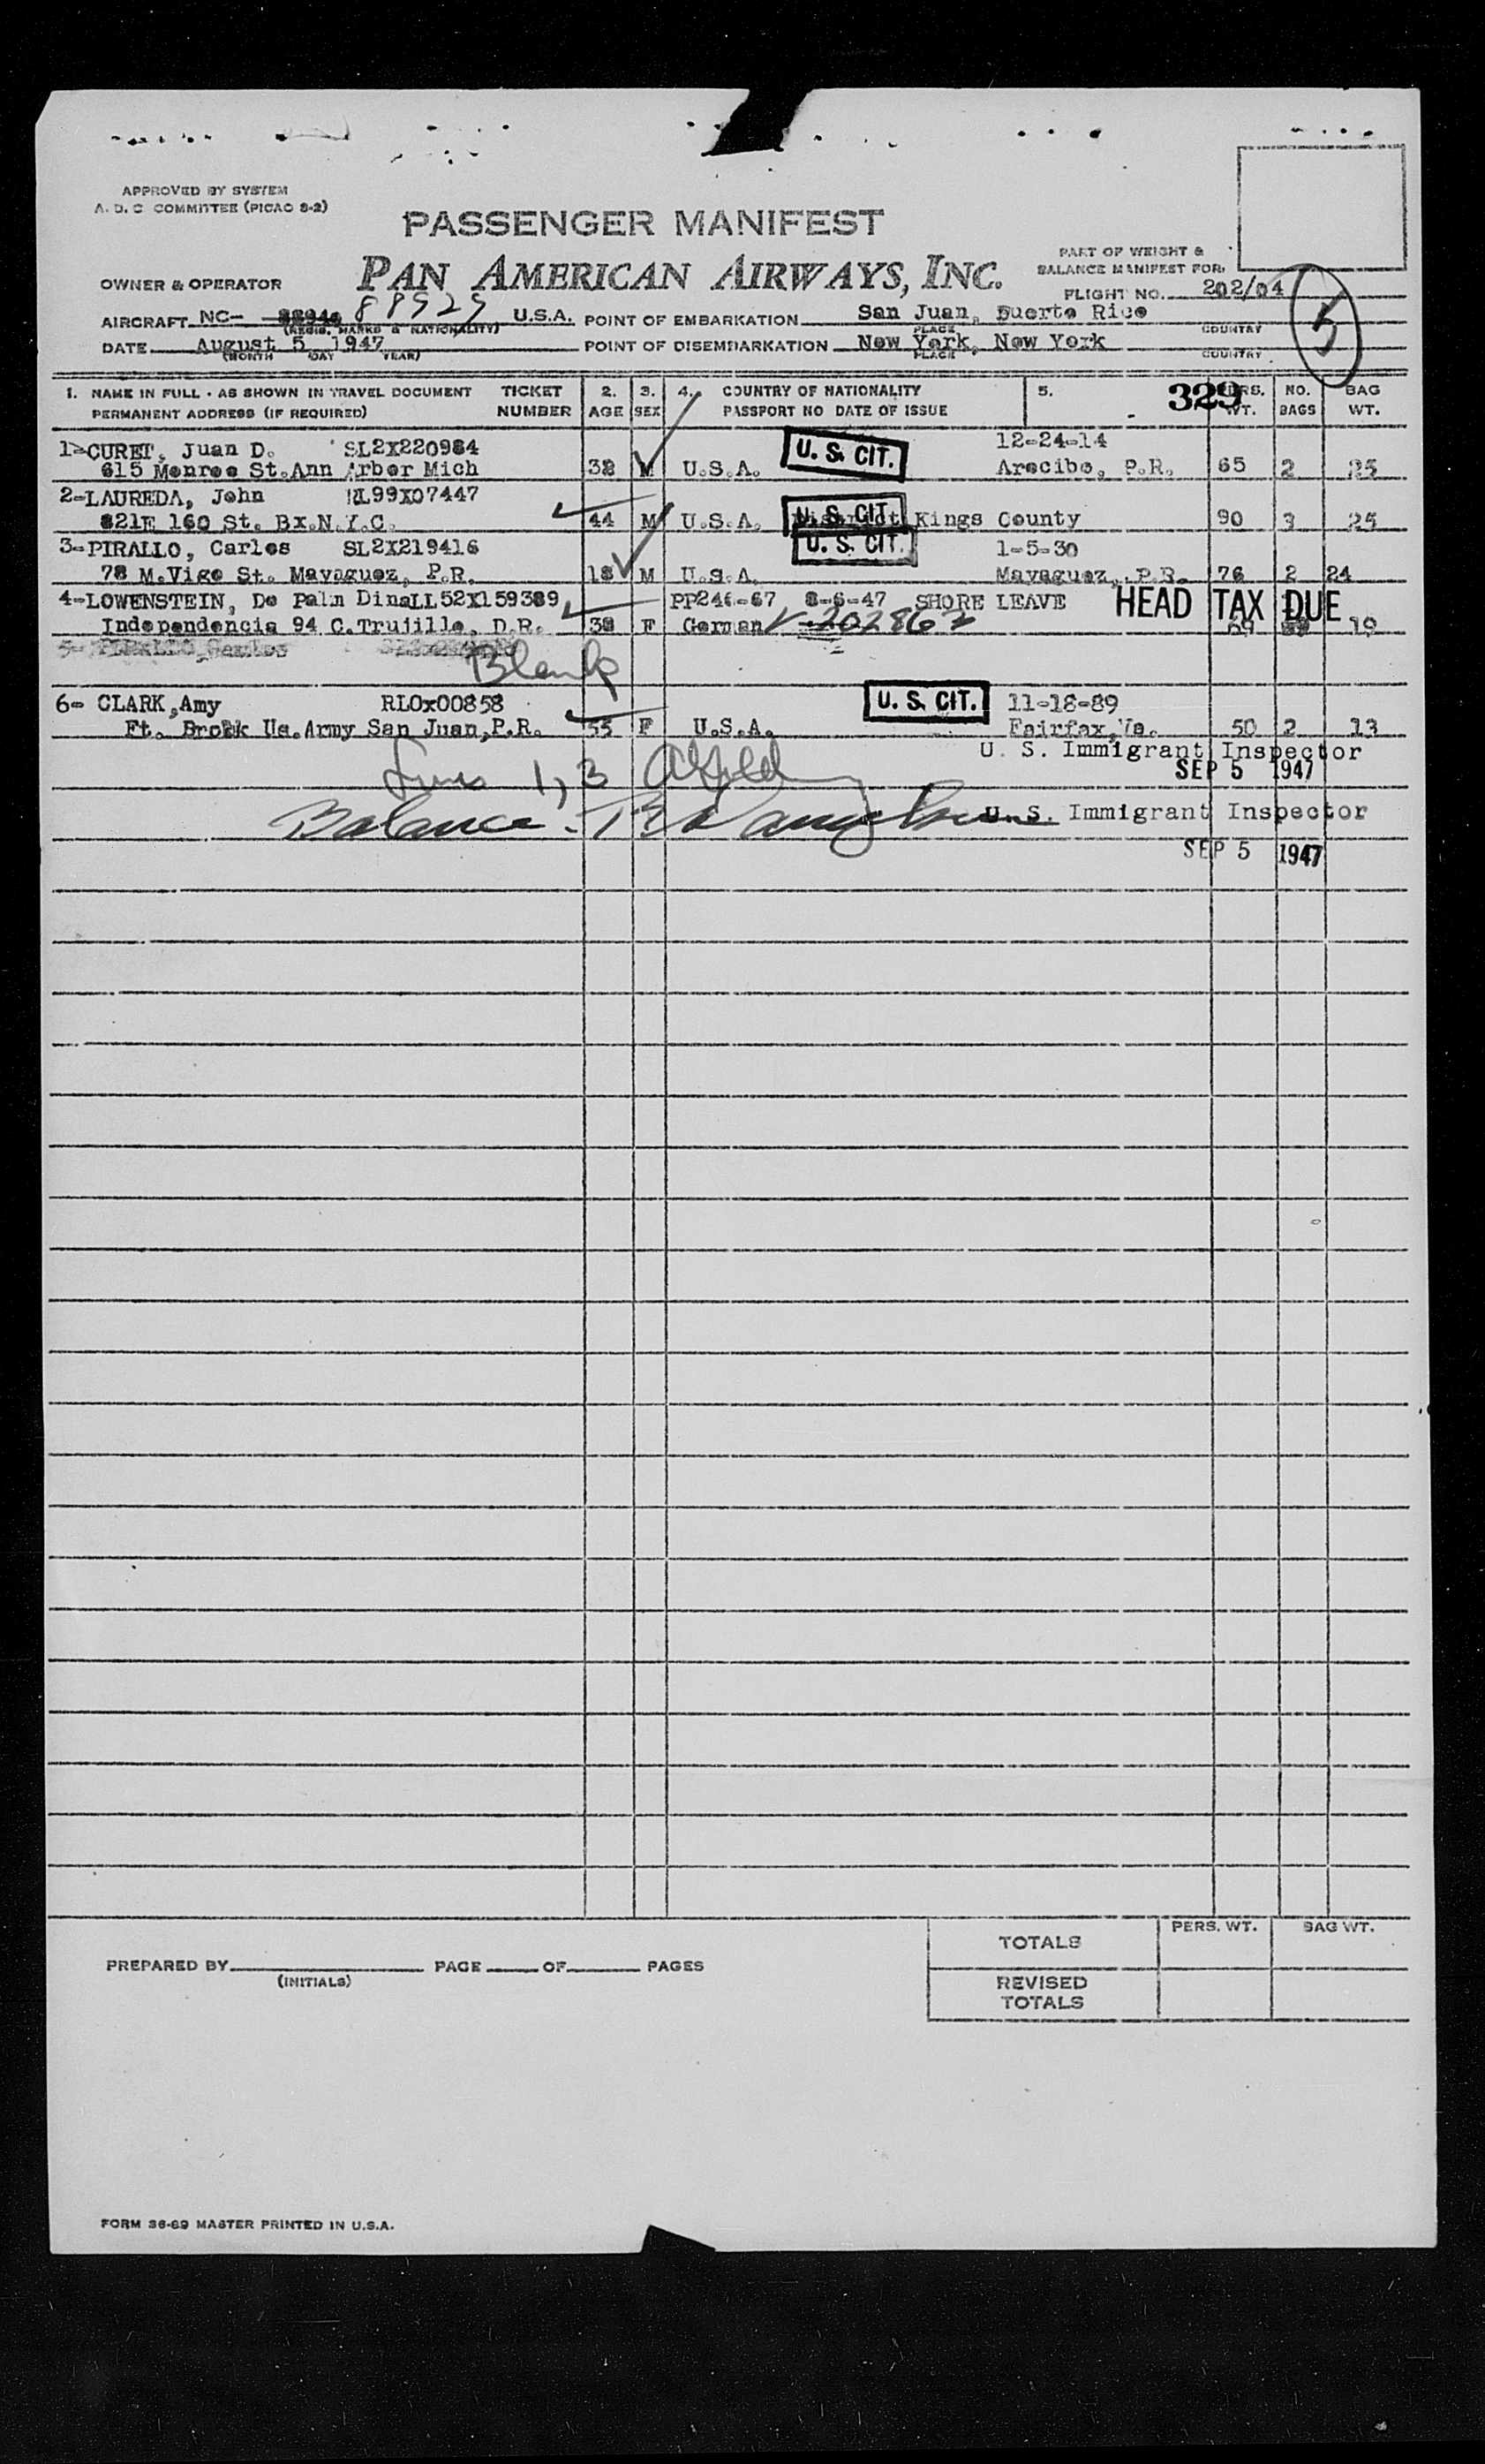 APPROVED BY SYSTEM
A. D. C COMMITTEE (PICAO 8-2)
PASSENGER MANIFEST
PART OF WEIGHT &
BALANCE MANIFEST FOR:
OWNER & OPERATOR PAN AMERICAN AIRWAYS, INC.
FLIGHT NO. 202/04
5
AIRCRAFT NC- 88929 U.S.A. POINT OF EMBARKATION San Juan, Puerto Rico
(REGIS. MARKS & NATIONALITY) PLACE COUNTRY
DATE August 5 1947 POINT OF DISEMBARKATION New York, New York
(MONTH DAY YEAR) PLACE COUNTRY
1. NAME IN FULL - AS SHOWN IN TRAVEL DOCUMENT TICKET 2. 3. 4. COUNTRY OF NATIONALITY 5. 329 PERS. NO. BAG
PERMANENT ADDRESS (IF REQUIRED) NUMBER AGE SEX PASSPORT NO DATE OF ISSUE WT. BAGS WT.
1-CURET, Juan D. SL2X220984 U. S. CIT. 12-24-14
615 Monroe St.Ann Arbor Mich 32 M U.S.A. Arecibo, P.R. 65 2 25
2-LAUREDA, John 99X07447
821E 160 St. Bx.N.Y.C. 44 M U.S.A. U. S. CIT. Kings County 90 3 25
3-PIRALLO, Carlos SL2X219416 U. S. CIT. 1-5-30
78 M.Vigo St. Mayaguez, P.R. 18 M U.S.A. Mayaguez, P.R. 76 2 24
4-LOWENSTEIN, De Palm Dina LL52X159389 PP246-67 8-6-47 SHORE LEAVE HEAD TAX DUE
Independencia 94 C.Trujillo, D.R. 38 F German V-202862 69 19
5- PIRALLO, Carlos
Blank
6- CLARK,Amy RL0x00858 U. S. CIT. 11-18-89
Ft. Brook Us.Army San Juan,P.R. 55 F U.S.A. Fairfax,Va. 50 2 13
U. S. Immigrant Inspector
Lines 1, 3 SEP 5 1947
Balance - U. S. Immigrant Inspector
SEP 5 1947
TOTALS PERS. WT. BAG WT.
PREPARED BY PAGE OF PAGES
(INITIALS)
REVISED
TOTALS
FORM 36-89 MASTER PRINTED IN U.S.A.